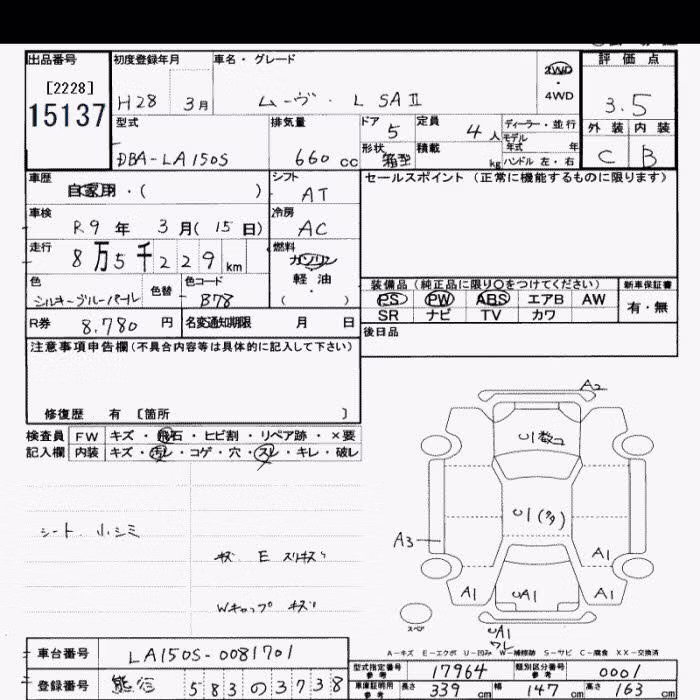 出品番号 初度登録年月 車名・グレード 2WD・4WD 評価点
[2228]
15137
H28 3月 ムーヴ・L SAⅡ 3.5
型式 排気量 ドア 5 定員 4人 ディーラー・並行 外装 内装
モデル年式 年
DBA-LA150S 660cc 形状 箱型 積載 kg ハンドル 左・右 C B
車歴 シフト セールスポイント(正常に機能するものに限ります)
自家用・( ) AT
車検 冷房
R9年 3月(15日) AC
走行 燃料
8万5千229km ガソリン
軽油
( )
色 色替 色コード 装備品(純正品に限り〇をつけてください) 新車保証書
シルキーブルーパール B78 PS PW ABS エアB AW 有・無
SR ナビ TV カワ
R券 8,780円 名変通知期限 月 日
後日品
注意事項申告欄(不具合内容等は具体的に記入して下さい)
修復歴 有 〔箇所 〕
検査員 FW キズ・飛石・ヒビ割・リペア跡・×要
記入欄 内装 キズ・汚レ・コゲ・穴・スレ・キレ・破レ
A2
U1数コ
シート 小シミ
U1(多)
A3
A1
キズ E スリキズ
A1 UA1 A1
Wキャップ キズ
スペア
UA1
ワレ
A-キズ E-エクボ U-凹み W-補修跡 S-サビ C-腐食 XX-交換済
車台番号 LA150S-0081701
型式指定番号 参考 17964 類別区分番号 参考 0001
登録番号 583の3738
車庫証明用 参考 長さ 339cm 幅 147cm 高さ 163cm